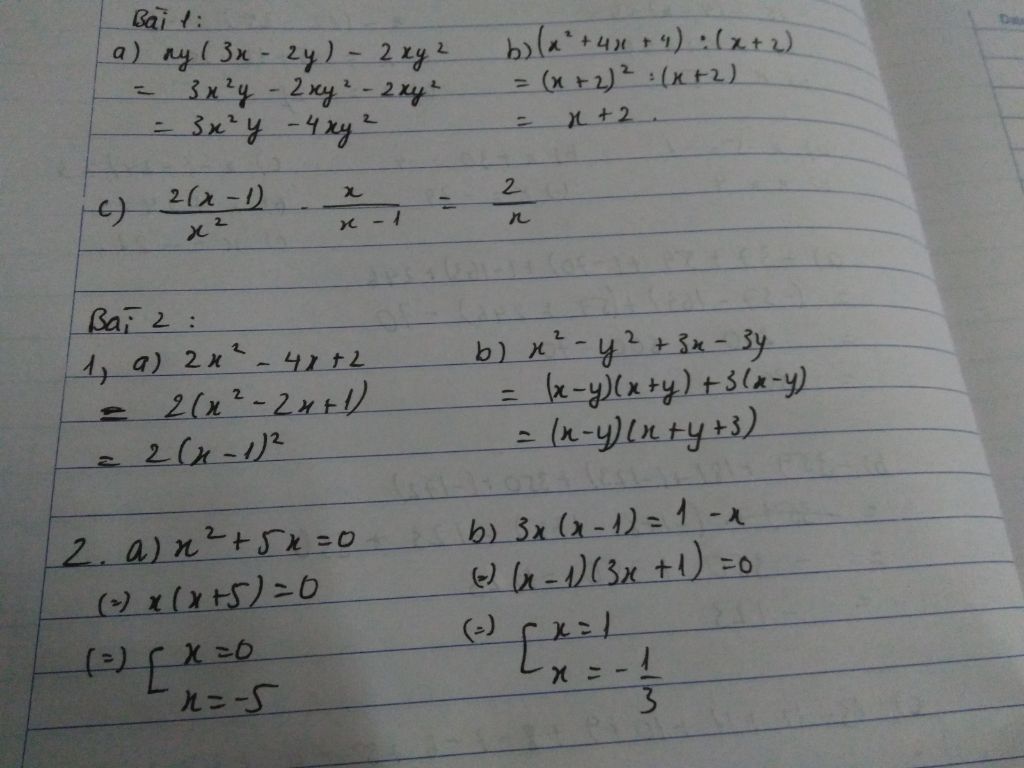 Bài 1:
a) xy(3x - 2y) - 2xy²
= 3x²y - 2xy² - 2xy²
= 3x²y - 4xy²
b) (x² + 4x + 4) : (x + 2)
= (x + 2)² : (x + 2)
= x + 2.
c) 2(x - 1)/x² . x/(x - 1) = 2/x
Bài 2:
1, a) 2x² - 4x + 2
= 2(x² - 2x + 1)
= 2(x - 1)²
b) x² - y² + 3x - 3y
= (x - y)(x + y) + 3(x - y)
= (x - y)(x + y + 3)
2. a) x² + 5x = 0
(=) x(x + 5) = 0
(=) [ x = 0
x = -5
b) 3x(x - 1) = 1 - x
(=) (x - 1)(3x + 1) = 0
(=) [ x = 1
x = -1/3